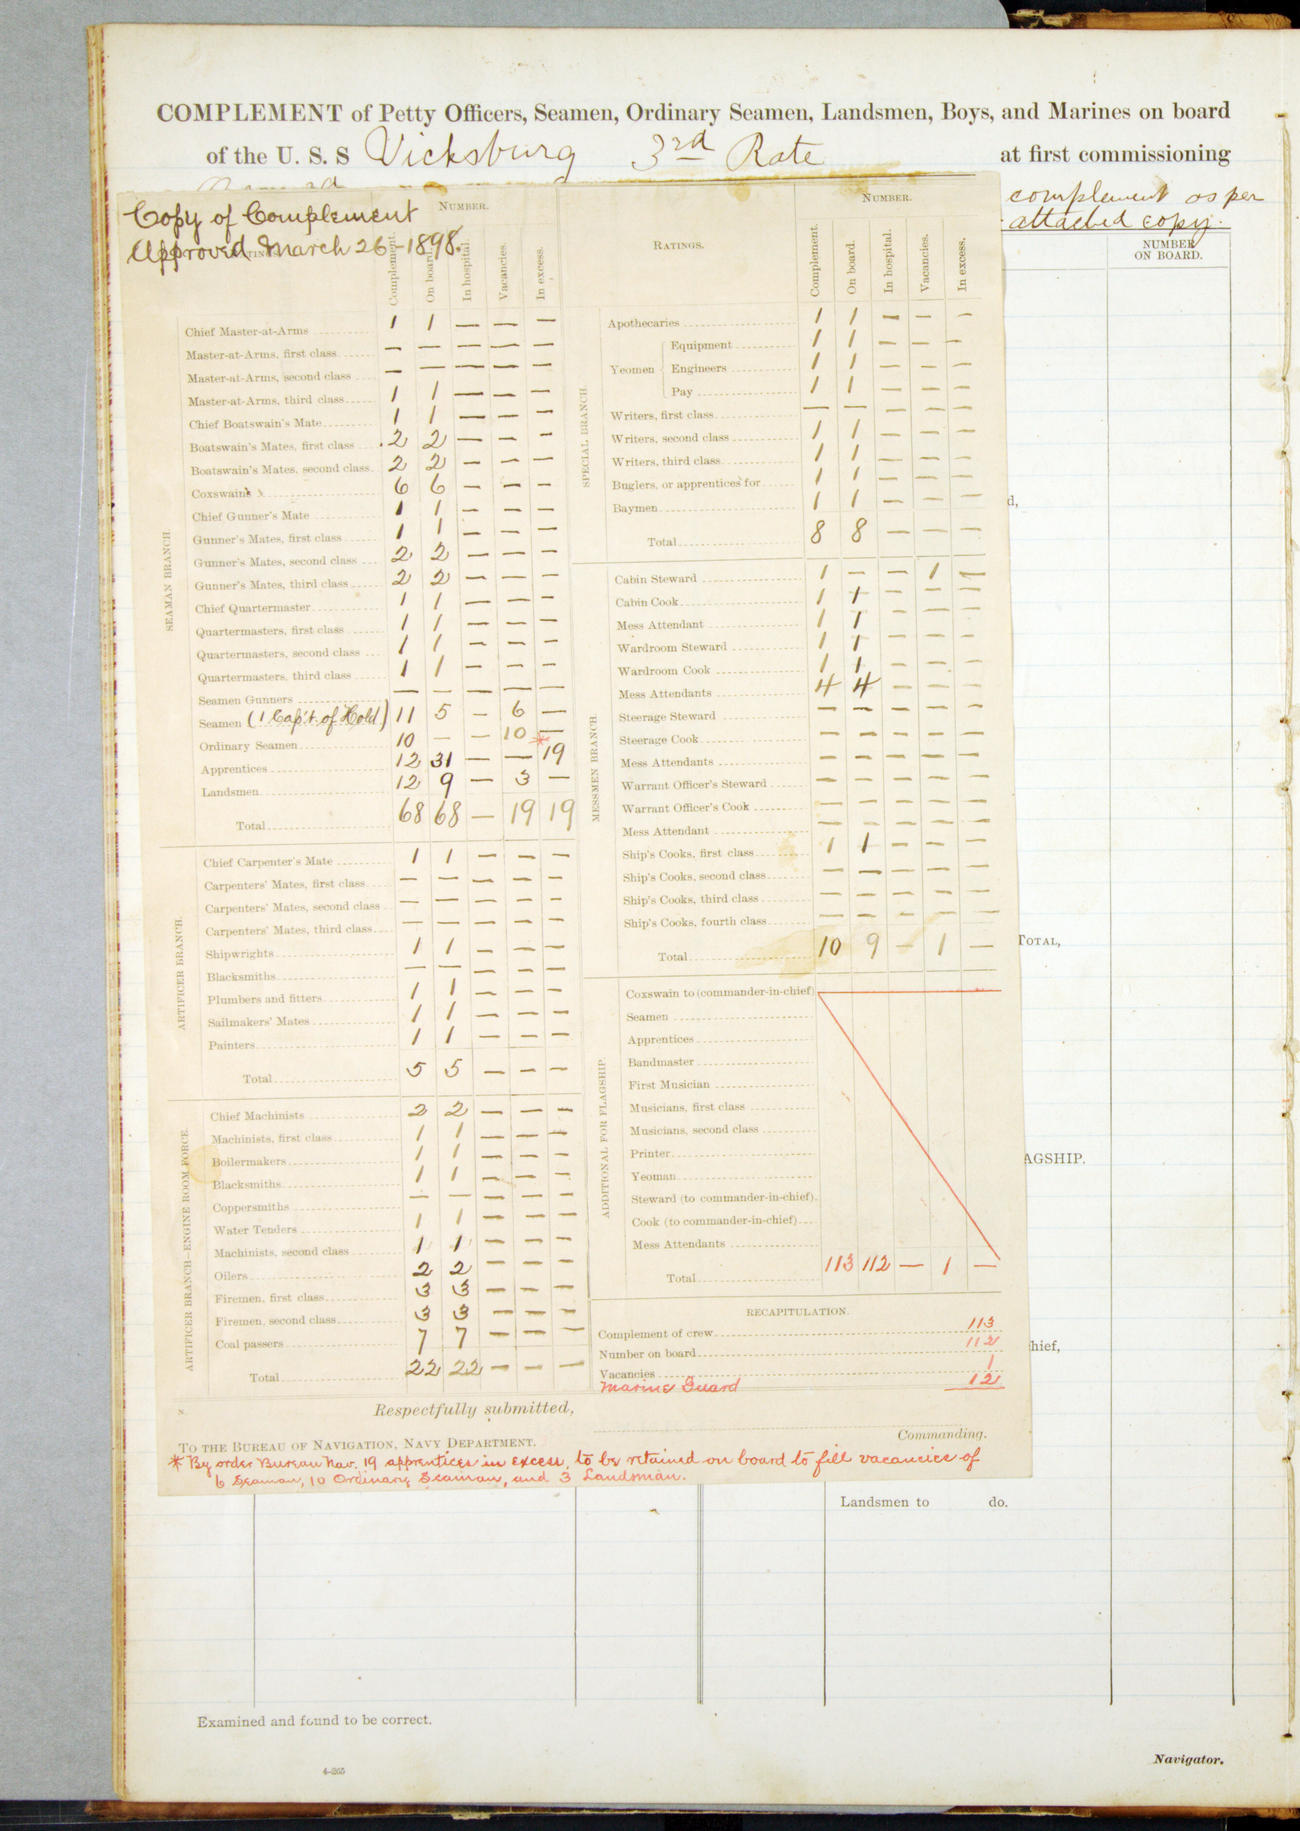 COMPLEMENT of Petty Officers, Seamen, Ordinary Seamen, Landsmen, Boys, and Marines on board
of the U. S. S Vicksburg 3rd Rate at first commissioning
complement as per
attached copy.
NUMBER
ON BOARD.
Copy of Complement
Approved March 26-1898.
NUMBER.
Complement. On board. In hospital. Vacancies. In excess.
Chief Master-at-Arms 1 1 — — —
Master-at-Arms, first class — — — — —
Master-at-Arms, second class — — — — —
Master-at-Arms, third class 1 1 — — —
Chief Boatswain's Mate 1 1 — — —
Boatswain's Mates, first class 2 2 — — —
Boatswain's Mates, second class 2 2 — — —
Coxswains 6 6 — — —
Chief Gunner's Mate 1 1 — — —
Gunner's Mates, first class 1 1 — — —
Gunner's Mates, second class 2 2 — — —
Gunner's Mates, third class 2 2 — — —
Chief Quartermaster 1 1 — — —
Quartermasters, first class 1 1 — — —
Quartermasters, second class 1 1 — — —
Quartermasters, third class 1 1 — — —
Seamen Gunners — — — — —
Seamen (1 Cap't. of Hold) 11 5 — 6 —
Ordinary Seamen 10 — — 10 —
Apprentices 12 31 — — *19
Landsmen 12 9 — 3 —
Total 68 68 — 19 19
SEAMAN BRANCH.
Chief Carpenter's Mate 1 1 — — —
Carpenters' Mates, first class — — — — —
Carpenters' Mates, second class — — — — —
Carpenters' Mates, third class — — — — —
Shipwrights 1 1 — — —
Blacksmiths — — — — —
Plumbers and fitters 1 1 — — —
Sailmakers' Mates 1 1 — — —
Painters 1 1 — — —
Total 5 5 — — —
ARTIFICER BRANCH.
Chief Machinists 2 2 — — —
Machinists, first class 1 1 — — —
Boilermakers 1 1 — — —
Blacksmiths 1 1 — — —
Coppersmiths — — — — —
Water Tenders 1 1 — — —
Machinists, second class 1 1 — — —
Oilers 2 2 — — —
Firemen, first class 3 3 — — —
Firemen, second class 3 3 — — —
Coal passers 7 7 — — —
Total 22 22 — — —
ARTIFICER BRANCH—ENGINE ROOM FORCE.
RATINGS.
NUMBER.
Complement. On board. In hospital. Vacancies. In excess.
Apothecaries 1 1 — — —
Yeomen
Equipment 1 1 — — —
Engineers 1 1 — — —
Pay 1 1 — — —
Writers, first class — — — — —
Writers, second class 1 1 — — —
Writers, third class 1 1 — — —
Buglers, or apprentices for 1 1 — — —
Baymen 1 1 — — —
Total 8 8 — — —
SPECIAL BRANCH.
Cabin Steward 1 — — 1 —
Cabin Cook 1 1 — — —
Mess Attendant 1 1 — — —
Wardroom Steward 1 1 — — —
Wardroom Cook 1 1 — — —
Mess Attendants 4 4 — — —
Steerage Steward — — — — —
Steerage Cook — — — — —
Mess Attendants — — — — —
Warrant Officer's Steward — — — — —
Warrant Officer's Cook — — — — —
Mess Attendant — — — — —
Ship's Cooks, first class 1 1 — — —
Ship's Cooks, second class — — — — —
Ship's Cooks, third class — — — — —
Ship's Cooks, fourth class — — — — —
Total 10 9 — 1 —
MESSMEN BRANCH.
Coxswain to (commander-in-chief)
Seamen
Apprentices
Bandmaster
First Musician
Musicians, first class
Musicians, second class
Printer
Yeoman
Steward (to commander-in-chief)
Cook (to commander-in-chief)
Mess Attendants
Total 113 112 — 1 —
ADDITIONAL FOR FLAGSHIP.
RECAPITULATION.
Complement of crew 113
Number on board 112
Vacancies 1
Marine Guard 12
Respectfully submitted,
Commanding.
N.
TO THE BUREAU OF NAVIGATION, NAVY DEPARTMENT.
* By order Bureau Nav. 19 apprentices in excess, to be retained on board to fill vacancies of
6 Seaman, 10 Ordinary Seaman, and 3 Landsman.
d,
TOTAL,
AGSHIP.
hief,
Landsmen to do.
Examined and found to be correct.
4-265
Navigator.